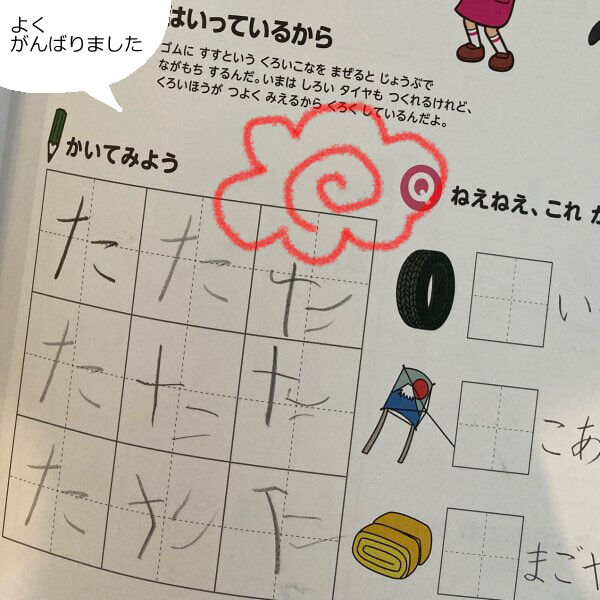 よく
がんばりました
はいっているから
ゴムに すすという くろいこなを まぜると じょうぶで
ながもち するんだ。いまは しろい タイヤも つくれるけれど、
くろいほうが つよく みえるから くろく しているんだよ。
かいてみよう
Q ねえねえ、これ か
た た た
た た た
た た た
い
こあ
まごや